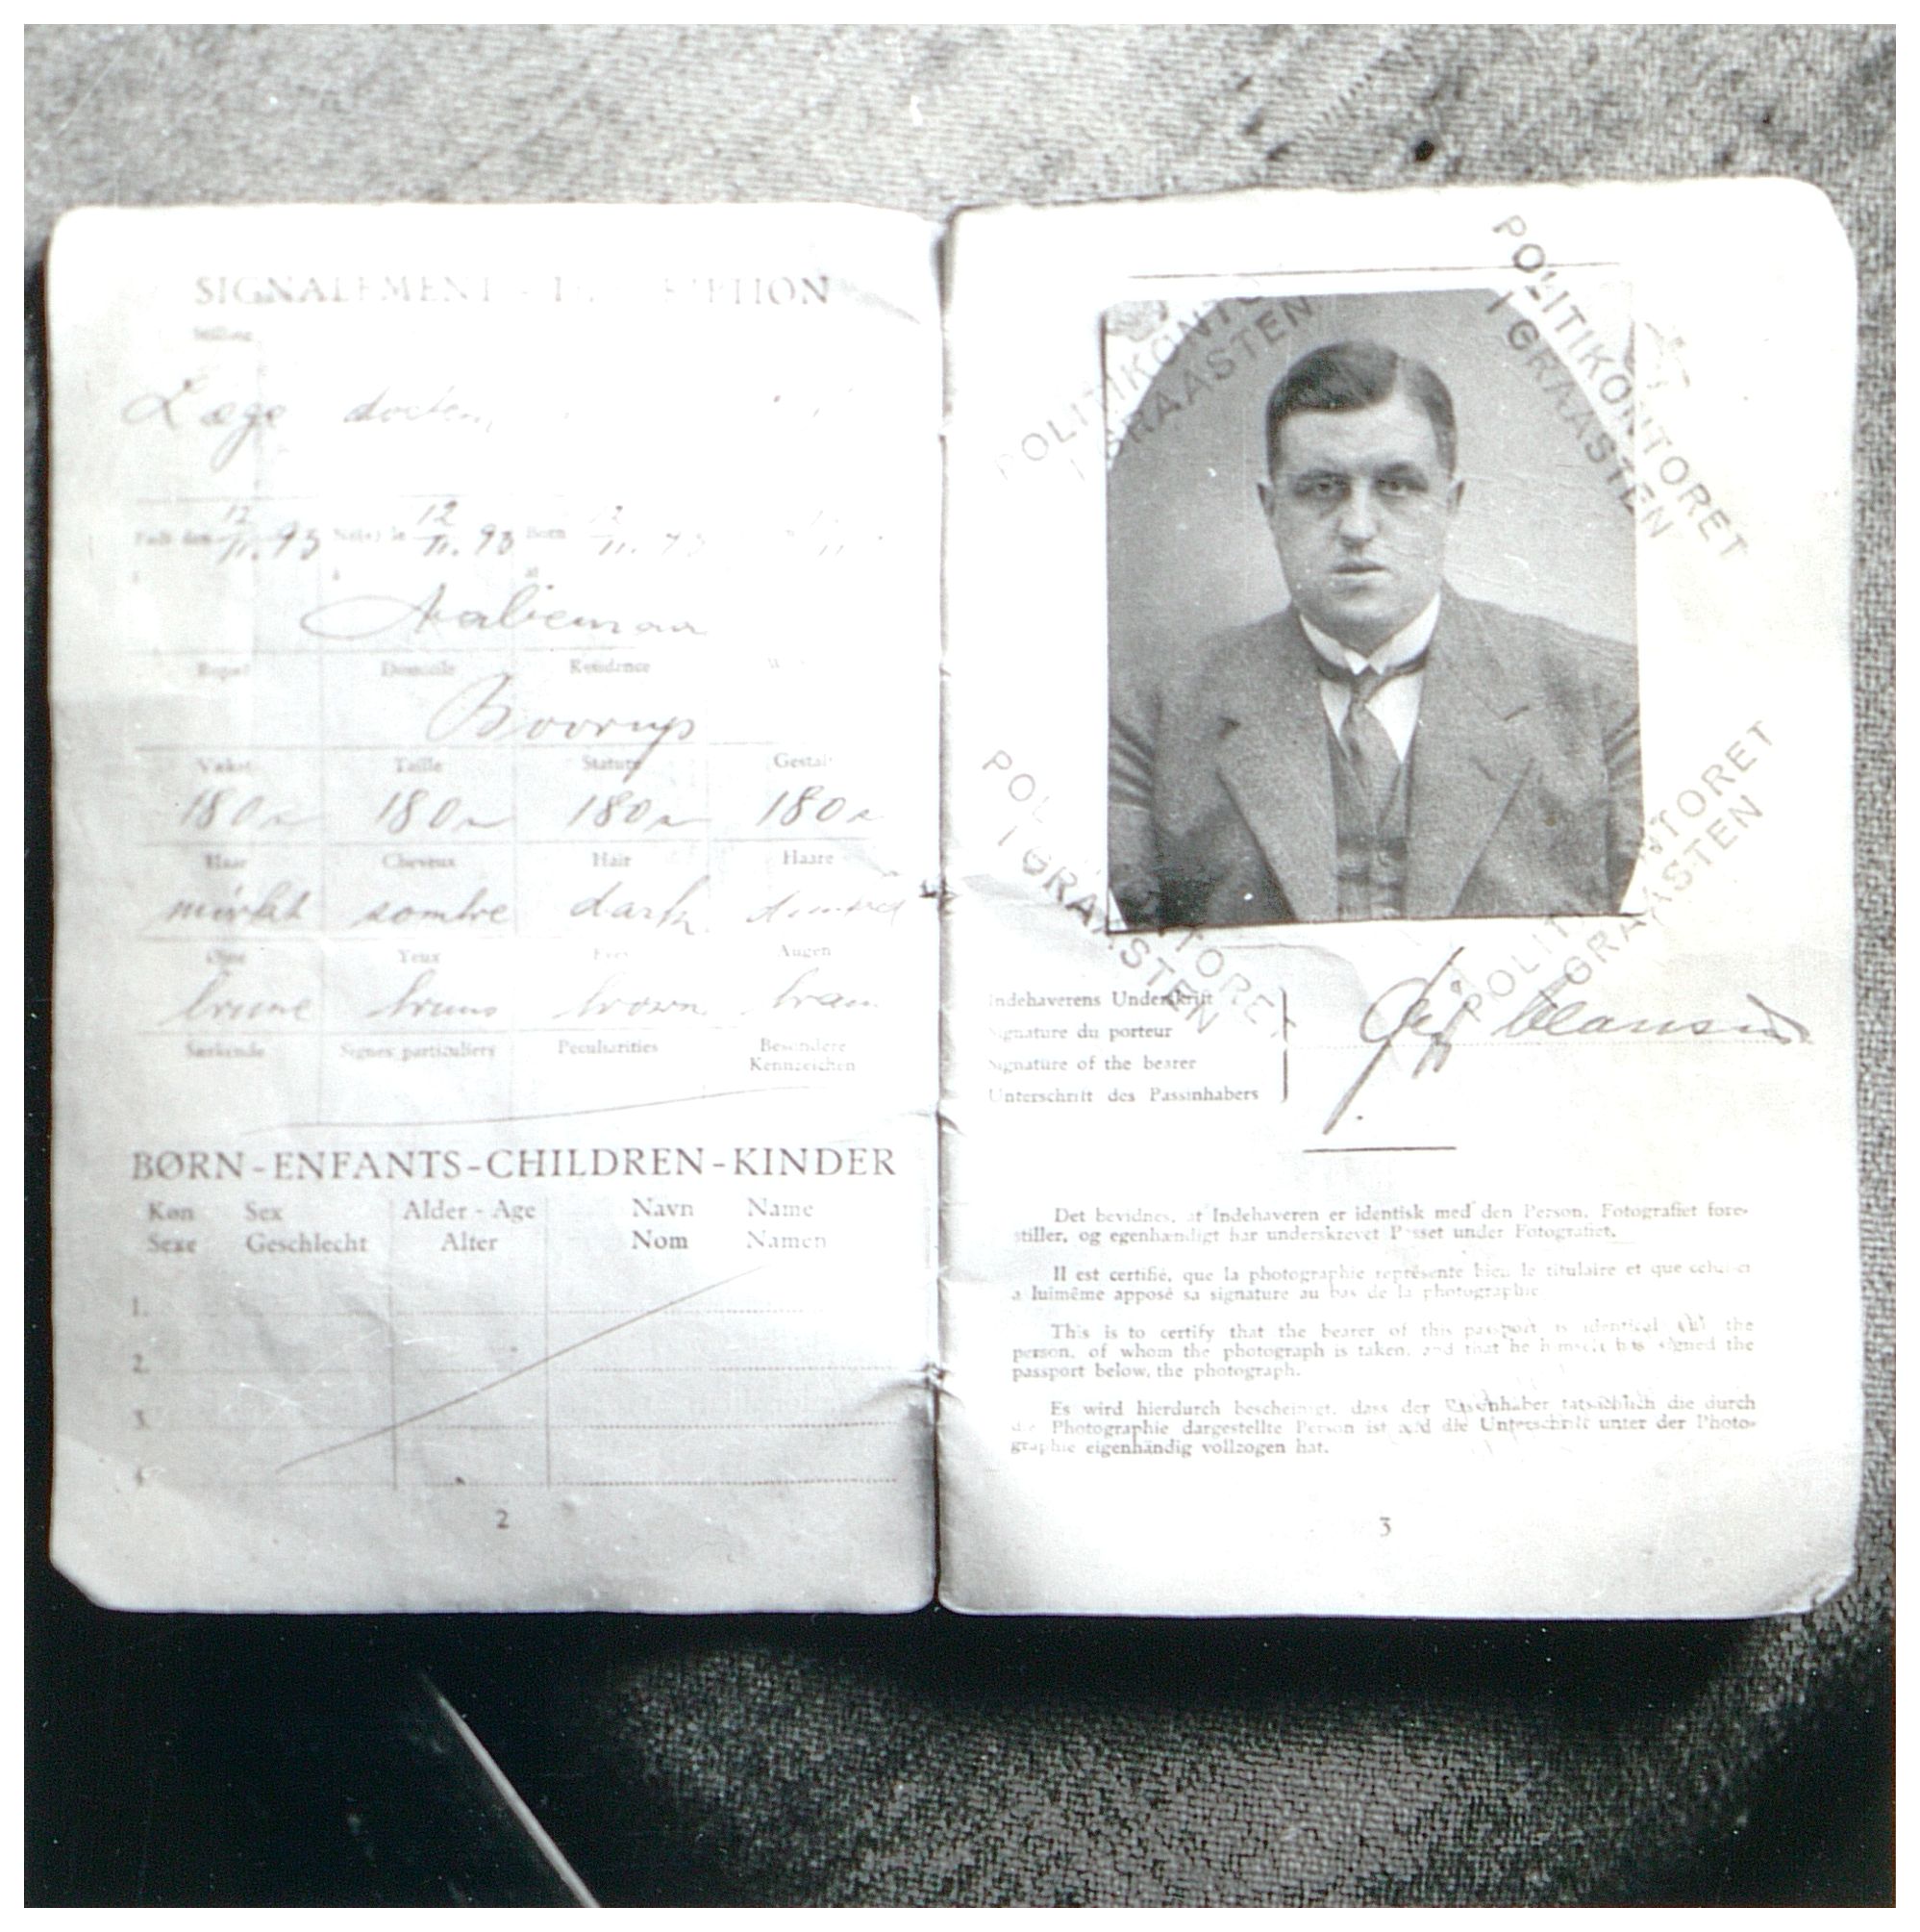 SIGNALEMENT
Stilling
Læge
Født den 12/11. 93 Né(e) le 12/11. 93 Born 12/11. 93
i à at
Bopæl Domicile Residence
Bovrup
Vækst Taille Stature Gestalt
180 180 180 180
Haar Cheveux Hair Haare
mørkt sombre dark
Øjne Yeux Eyes Augen
brune bruns brown
Særkende Signes particuliers Peculiarities Besondere
Kennzeichen
BØRN-ENFANTS-CHILDREN-KINDER
Køn Sex Alder - Age Navn Name
Sexe Geschlecht Alter Nom Namen
1.
2.
3.
4.
2
POLITIKONTORET
I GRAASTEN
POLITIKONTORET
I GRAASTEN
I GRAASTEN
I GRAASTEN
Indehaverens Underskrift
Signature du porteur
Signature of the bearer
Unterschrift des Passinhabers
Clausen
Det bevidnes, at Indehaveren er identisk med den Person, Fotografiet fore-
stiller, og egenhændigt har underskrevet Passet under Fotografiet.
Il est certifié, que la photographie représente bien le titulaire et que celui-ci
a luimême apposé sa signature au bas de la photographie
This is to certify that the bearer of this passport is identical with the
person, of whom the photograph is taken, and that he himself has signed the
passport below, the photograph.
Es wird hierdurch bescheinigt, dass der Passinhaber tatsächlich die durch
die Photographie dargestellte Person ist und die Unterschrift unter der Photo-
graphie eigenhändig vollzogen hat.
3